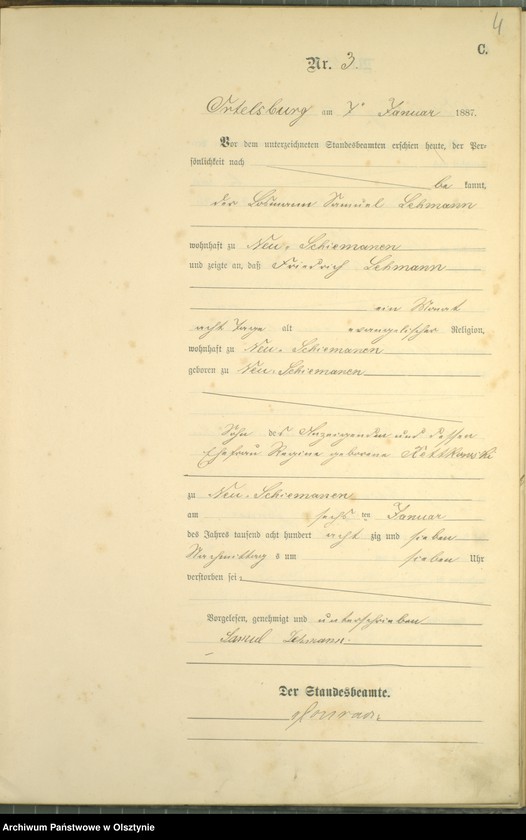 4
C.
Nr. 3.
Ortelsburg am 7ten Januar 1887.
Vor dem unterzeichneten Standesbeamten erschien heute, der Per-
sönlichkeit nach
be kannt,
der Losmann Samuel Lehmann
wohnhaft zu Neu-Schiemanen
und zeigte an, daß Friedrich Lehmann
ein Monat
acht Tage alt evangelischer Religion,
wohnhaft zu Neu-Schiemanen
geboren zu Neu-Schiemanen
Sohn des Anzeigenden und dessen
Ehefrau Regine geborene
zu Neu-Schiemanen
am sechs ten Januar
des Jahres tausend acht hundert acht zig und sieben
Nachmittag s um sieben Uhr
verstorben sei
Vorgelesen, genehmigt und unterschrieben
Lehmann
Der Standesbeamte.
Archiwum Państwowe w Olsztynie